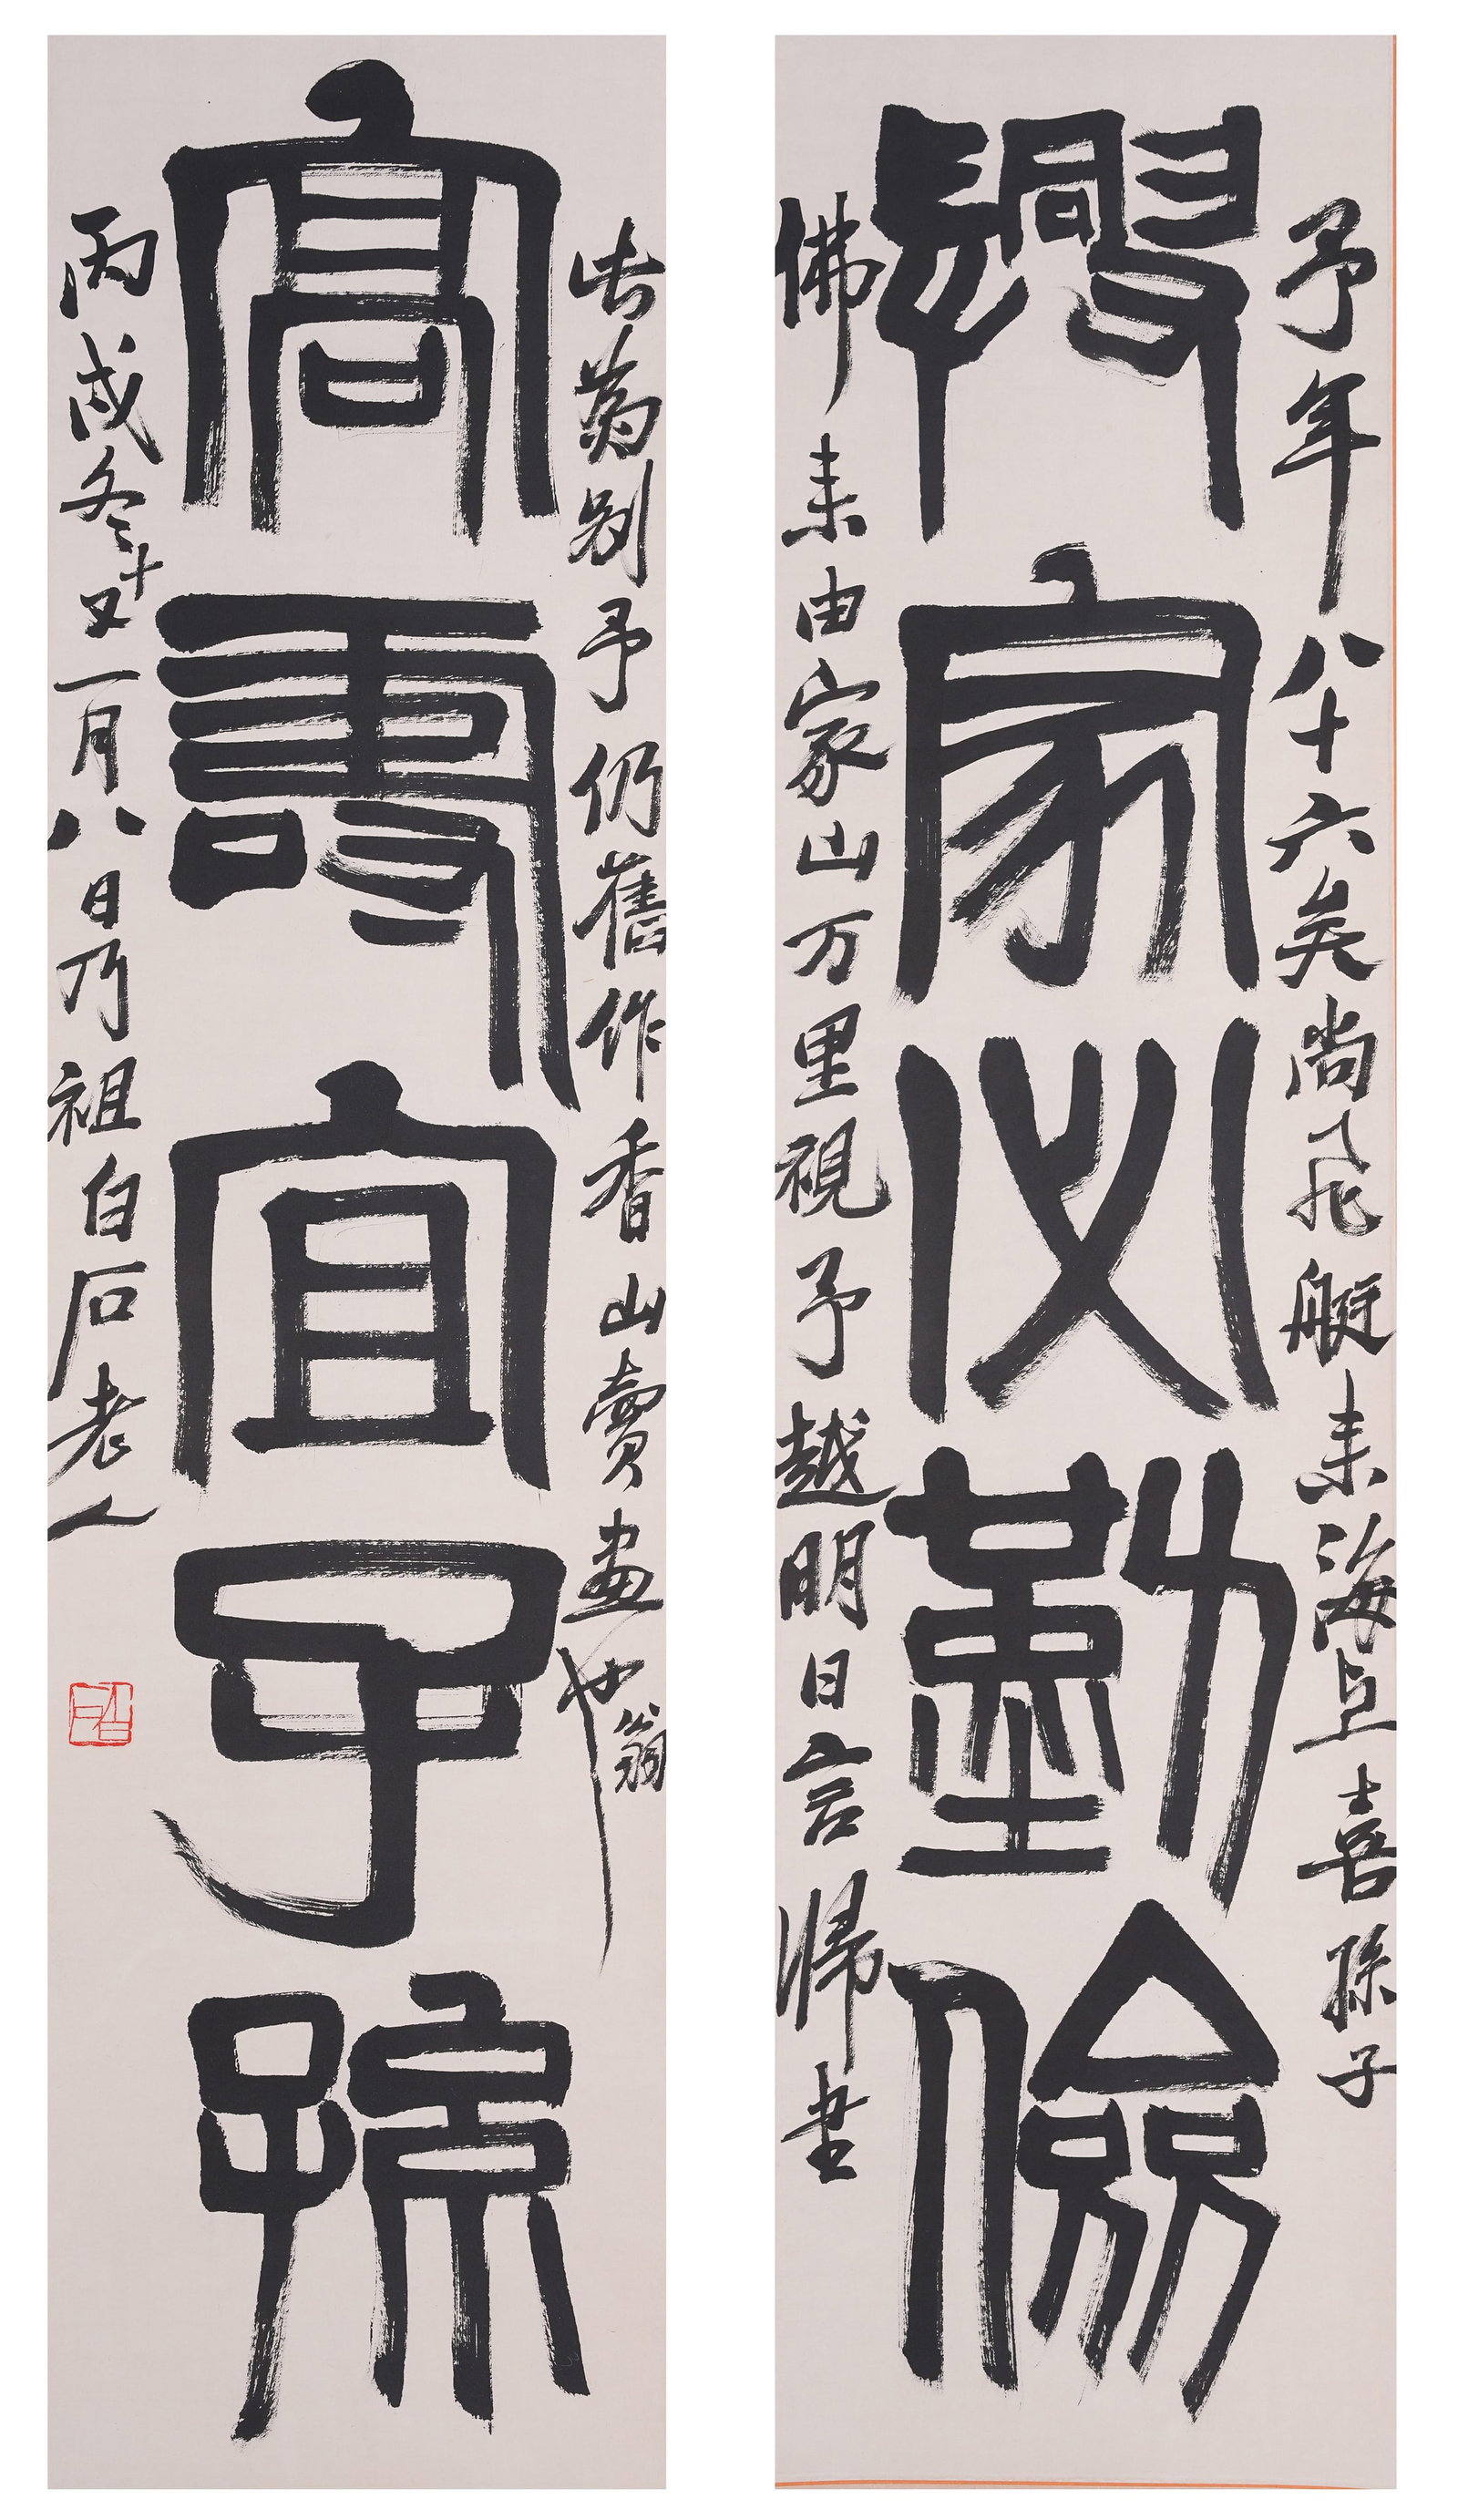 予年八十六矣尚飛艇来海上喜孫子
興家必勤儉
佛来由家山万里視予越明日言歸書
此為別予仍舊作香山賣畫翁也
高壽宜子孫
丙戌冬十又一月八日乃祖白石老人